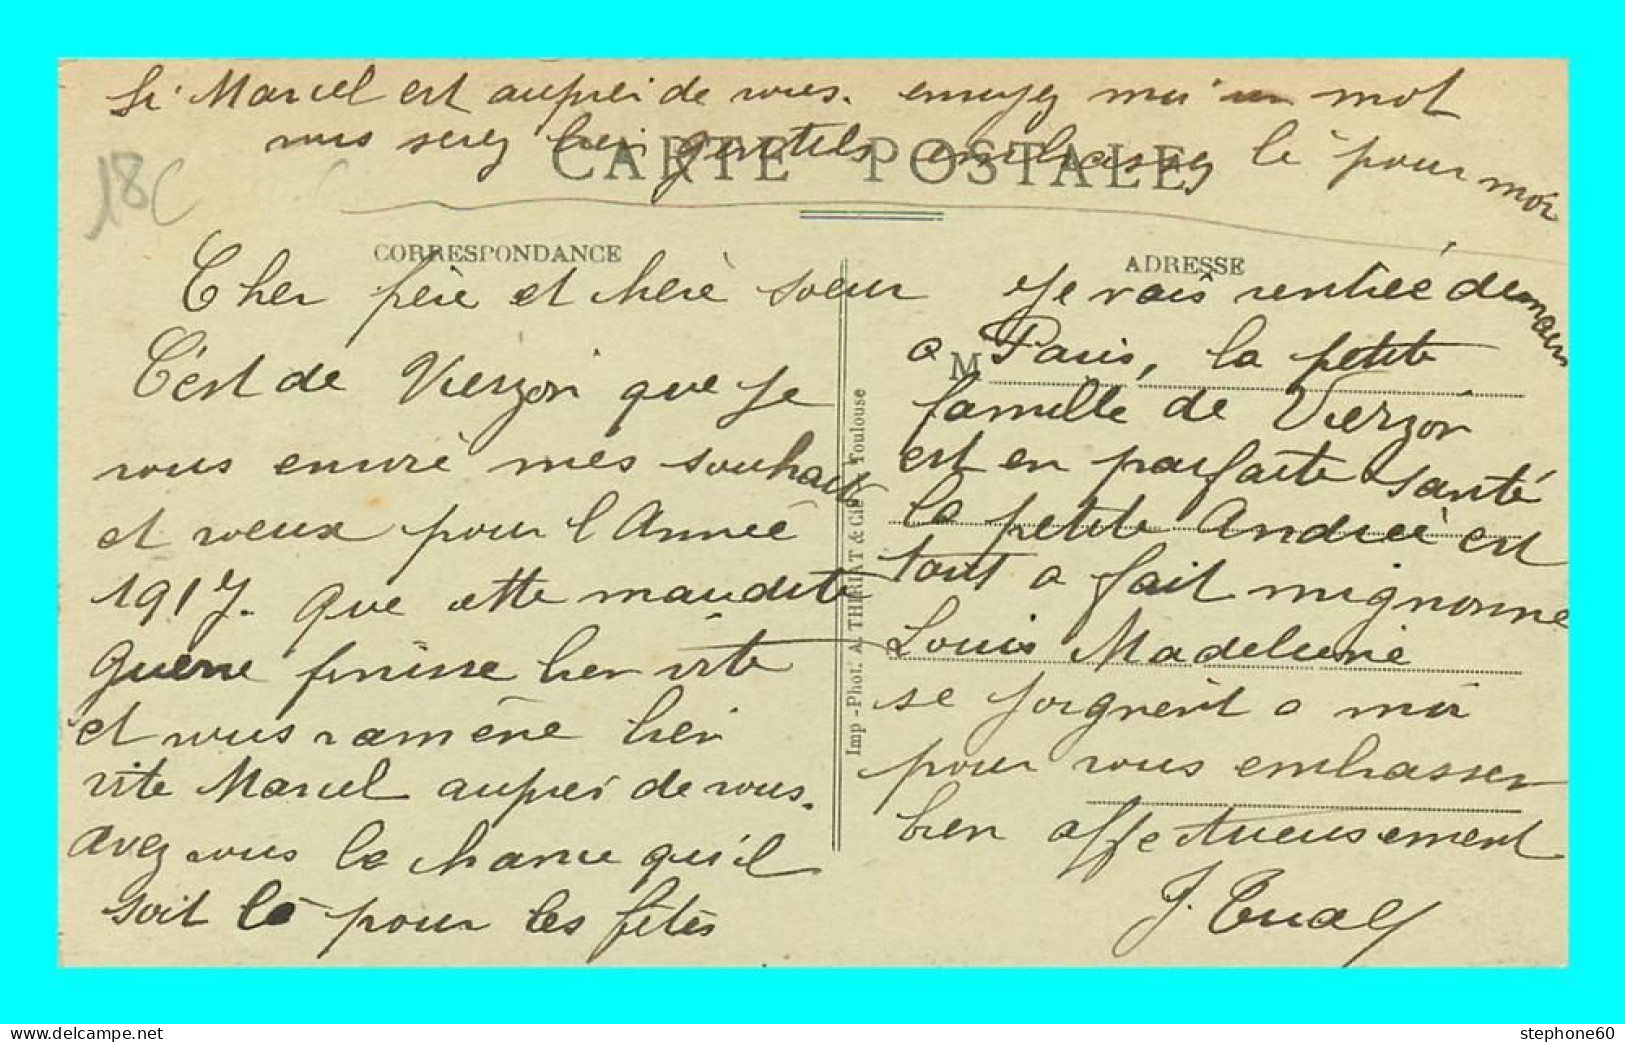 Si Marcel est auprei de vous. envoyez moi un mot
vous serez bien gentils embrassez le pour moi
CARTE POSTALE
18C
CORRESPONDANCE
Cher père et chère soeur
C'est de Vierzon que je
vous envoie mes souhaits
et voeux pour l'Année
1917. Que cette maudite
guerre finisse bien vite
et vous ramène bien
vite Marcel auprei de vous.
avez vous la chance qu'il
soit là pour les fêtes
Imp - Phot. A. THIRIAT & Cie - Toulouse
ADRESSE
Je vais rentrée demain
a Paris, la petite
M
famille de Vierzon
est en parfaite santé
la petite Andrée est
tout a fait mignonne
Louis Madeleine
se joignent a moi
pour vous embrasser
bien affectueusement
J. Tual
www.delcampe.net
stephone60